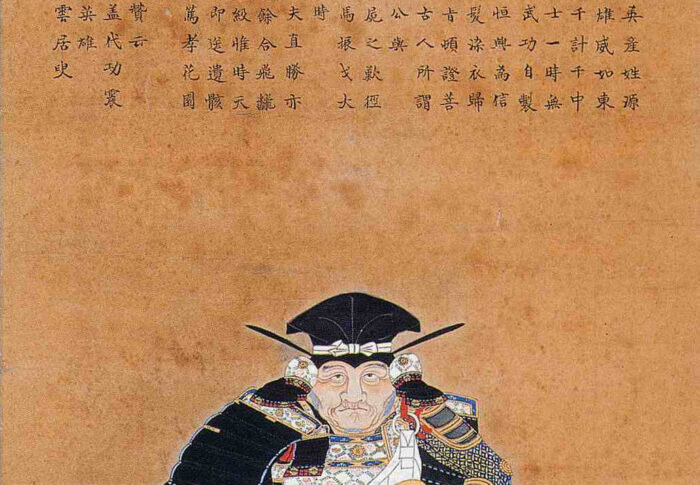 英産姓源
雄威如東
千計千中
士一時無
武功自製
恒興為信
髪染衣歸
肯頓證菩
古人所謂
公與
屍之歎徑
馬振戈大
時
夫直勝亦
餘合飛龍
級惟時天
即送遺骸
萬孝花園
贊云
蓋代功震
英雄
雲居叟